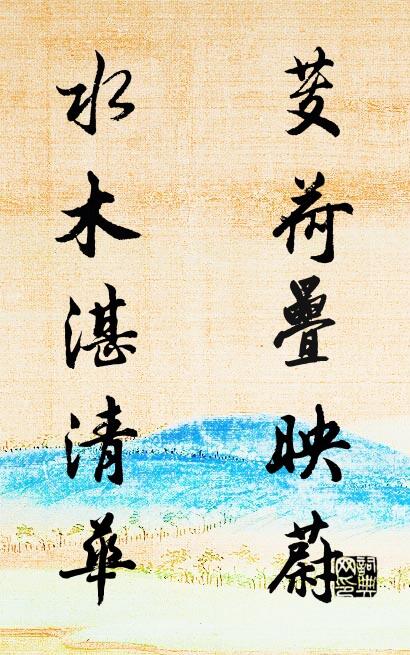 芰荷疊映蔚
水木湛清華
詞典网